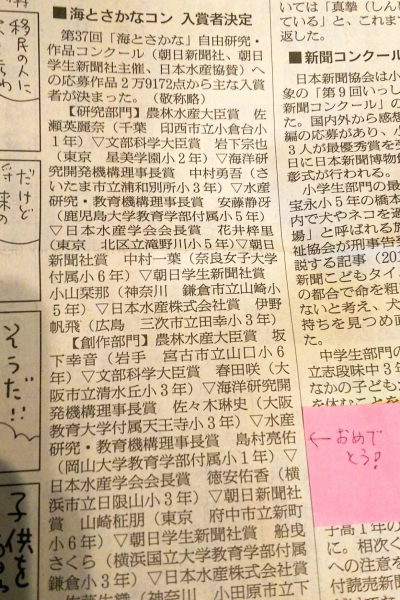 ■海とさかなコン 入賞者決定
第37回「海とさかな」自由研究・
作品コンクール(朝日新聞社、朝日
学生新聞社主催、日本水産協賛)へ
の応募作品2万9172点から主な入賞
者が決まった。(敬称略)
【研究部門】農林水産大臣賞 佐
瀬英麗奈(千葉 印西市立小倉台小
1年)▽文部科学大臣賞 岩下宗也
(東京 星美学園小2年)▽海洋研
究開発機構理事長賞 中村勇吾(さ
いたま市立浦和別所小3年)▽水産
研究・教育機構理事長賞 安藤静冴
(鹿児島大学教育学部付属小5年)
▽日本水産学会会長賞 花井梓里
(東京 北区立滝野川小5年)▽朝日
新聞社賞 中村一葉(奈良女子大学
付属小6年)▽朝日学生新聞社賞
小山栞那(神奈川 鎌倉市立山崎小
5年)▽日本水産株式会社賞 伊野
帆飛(広島 三次市立田幸小3年)
【創作部門】農林水産大臣賞 坂
下幸音(岩手 宮古市立山口小6
年)▽文部科学大臣賞 春田咲(大
阪市立清水丘小3年)▽海洋研究開
発機構理事長賞 佐々木琳史(大阪
教育大学付属天王寺小3年)▽水産
研究・教育機構理事長賞 島村亮佑
(岡山大学教育学部付属小1年)▽
日本水産学会会長賞 徳安佑香(横
浜市立日限山小3年)▽朝日新聞社
賞 山崎柾朋(東京 府中市立新町
小6年)▽朝日学生新聞社賞 船曳
さくら(横浜国立大学教育学部付属
鎌倉小3年)▽日本水産株式会社賞
神奈川 小田原市立下
いては「真摯(しん
い」と、これまで
返した。
■新聞コンクール
日本新聞協会は小
象の「第9回いっし
新聞コンクール」の
た。国内外から感想
編の応募があり、小
3人が最優秀賞を受
日に日本新聞博物館
彰式が行われる。
小学生部門の最
宝永小5年の橋本
内で犬やネコを過
場」と呼ばれる施
祉協会が刑事告発
説する記事(201
新聞こどもタイム
の都合で命を粗
ないと考え、犬
持ちを見つめ直
た。
中学生部門
立志段味中3年
なかの子ども
を休むことを
←おめで
とう!
子高1年の
に。相次ぐ
への注意を
付読売新聞
移民の人に
だけど
将来の
そうだ!!
子供を